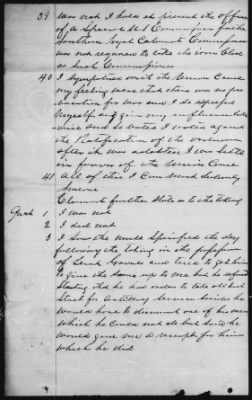 39 was not I hold at present the office
of a Special U S Commissioner for the
Southern Claims
was not required to take the iron Clad
as such Commissioner
40 I sympathized with the Union Cause
my feeling were that there was no
for war and I so expressed
myself and give my influence
and so voted I voted against
the Ratification of the ordinance
after it was adopted I was still
in favor of the Union Cause
41 All of this I can most Solemnly
swear
Claimant further States as to the taking
Quest 1 I was not
2 I did not
3 I saw the mule Springfield the day
following the taking in the possession
of and tried to get him
to give the same up to me but he refused
stating that he had orders to take all such
Stock for Artillery Service besides he
would have to dismount one of his men
which he could not do but said he
would give me a receipt for him
which he did